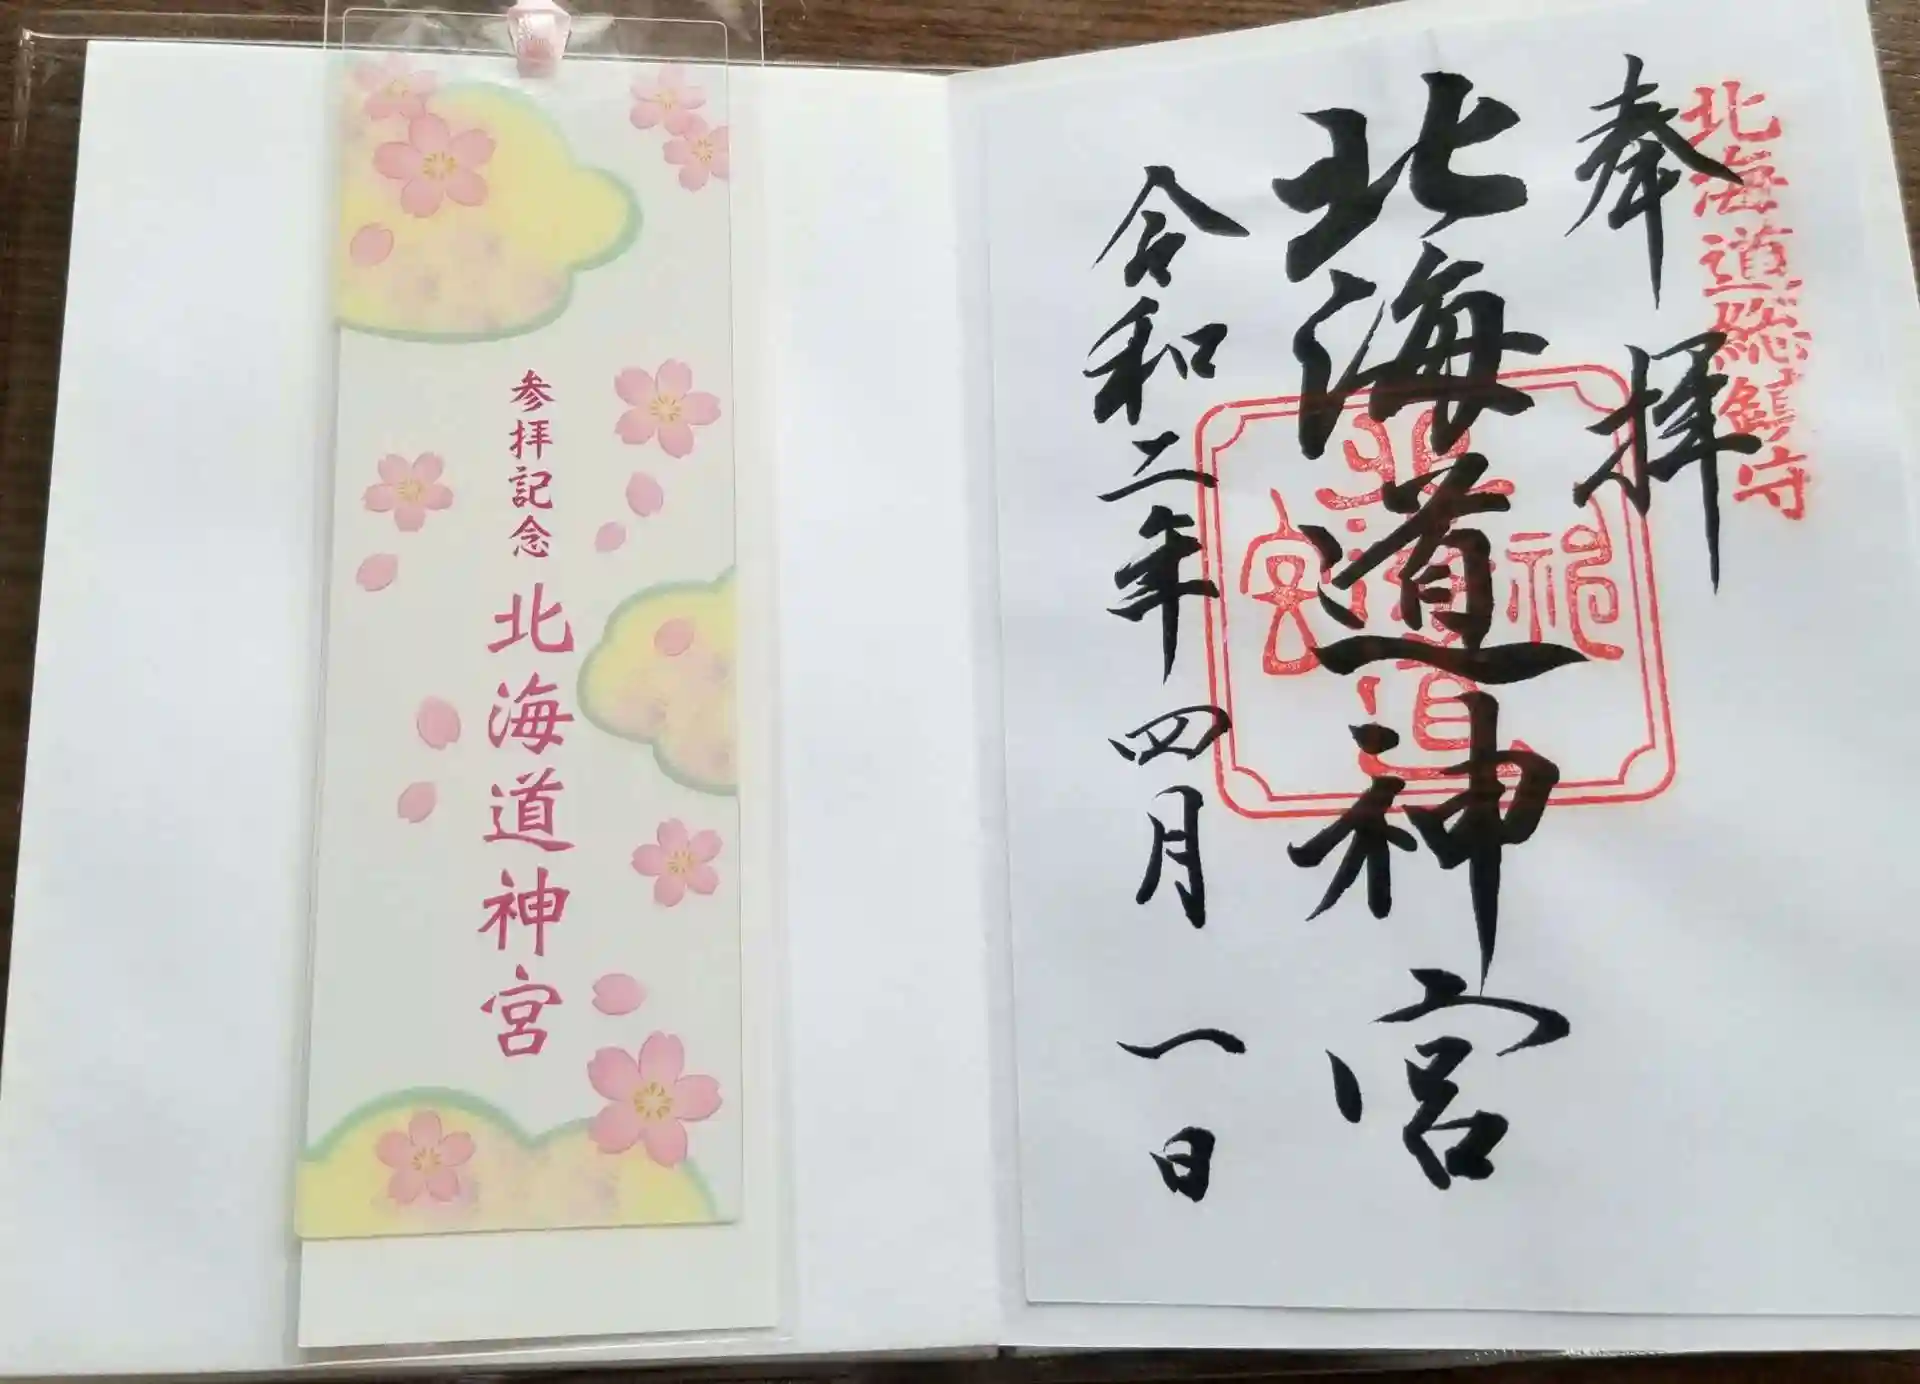 参拝記念 北海道神宮
北海道総鎮守
奉拝
北海道神宮
令和二年四月一日